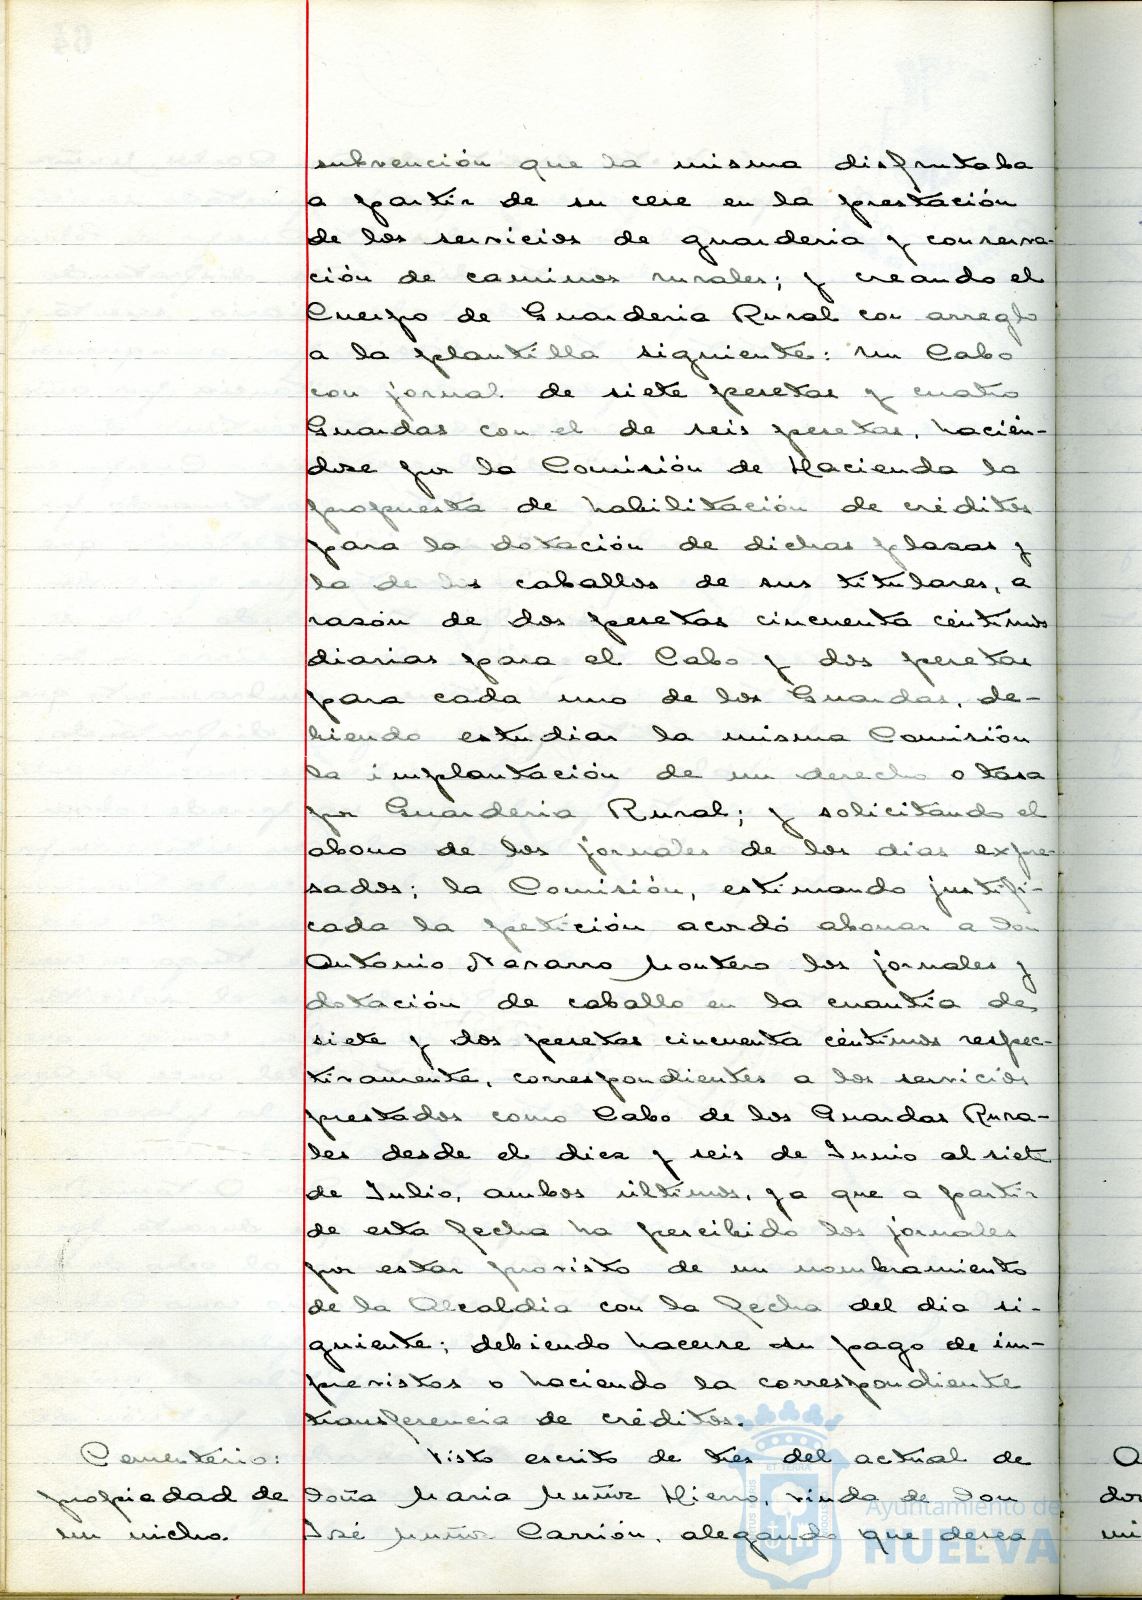 subvención que la misma disfrutaba
a partir de su cese en la prestación
de los servicios de guardería y conserva-
ción de caminos rurales; y creando el
Cuerpo de Guardería Rural con arreglo
a la plantilla siguiente: un Cabo
con jornal de siete pesetas y cuatro
Guardas con el de seis pesetas, hacién-
dose por la Comisión de Hacienda la
propuesta de habilitación de créditos
para la dotación de dichas plazas y
la de los caballos de sus titulares, a
razón de dos pesetas cincuenta céntimos
diarias para el Cabo y dos pesetas
para cada uno de los Guardas, de-
biendo estudiar la misma Comisión
la implantación de un derecho o tasa
por Guardería Rural; y solicitando el
abono de los jornales de los días expre-
sados; la Comisión, estimando justifi-
cada la petición acordó abonar a Don
Antonio Navarro Montero los jornales y
dotación de caballo en la cuantía de
siete y dos pesetas cincuenta céntimos respec-
tivamente, correspondientes a los servicios
prestados como Cabo de los Guardas Rura-
les desde el diez y seis de Junio al siete
de Julio, ambos últimos, ya que a partir
de esta fecha ha percibido los jornales
por estar provisto de un nombramiento
de la Alcaldía con la fecha del día si-
guiente; debiendo hacerse su pago de im-
previstos o haciendo la correspondiente
transferencia de créditos.
Cementerio:
propiedad de
un nicho.
Visto escrito de tres del actual de
Doña María Muñoz Hierro, viuda de Don
José Muñoz Carrión, alegando que desea
Ayuntamiento de
HUELVA